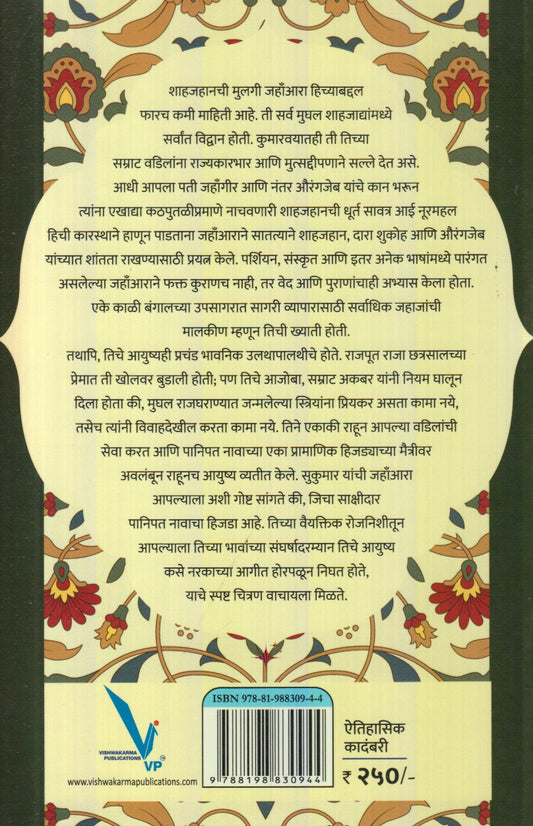 शाहजहानची मुलगी जहाँआरा हिच्याबद्दल
फारच कमी माहिती आहे. ती सर्व मुघल शाहजाद्यांमध्ये
सर्वांत विद्वान होती. कुमारवयातही ती तिच्या
सम्राट वडिलांना राज्यकारभार आणि मुत्सद्दीपणाने सल्ले देत असे.
आधी आपला पती जहाँगीर आणि नंतर औरंगजेब यांचे कान भरून
त्यांना एखाद्या कठपुतळीप्रमाणे नाचवणारी शाहजहानची धूर्त सावत्र आई नूरमहल
हिची कारस्थाने हाणून पाडताना जहाँआराने सातत्याने शाहजहान, दारा शुकोह आणि औरंगजेब
यांच्यात शांतता राखण्यासाठी प्रयत्न केले. पर्शियन, संस्कृत आणि इतर अनेक भाषांमध्ये पारंगत
असलेल्या जहाँआराने फक्त कुराणच नाही, तर वेद आणि पुराणांचाही अभ्यास केला होता.
एके काळी बंगालच्या उपसागरात सागरी व्यापारासाठी सर्वाधिक जहाजांची
मालकीण म्हणून तिची ख्याती होती.
तथापि, तिचे आयुष्यही प्रचंड भावनिक उलथापालथीचे होते. राजपूत राजा छत्रसालच्या
प्रेमात ती खोलवर बुडाली होती; पण तिचे आजोबा, सम्राट अकबर यांनी नियम घालून
दिला होता की, मुघल राजघराण्यात जन्मलेल्या स्त्रियांना प्रियकर असता कामा नये,
तसेच त्यांनी विवाहदेखील करता कामा नये. तिने एकाकी राहून आपल्या वडिलांची
सेवा करत आणि पानिपत नावाच्या एका प्रामाणिक हिजड्याच्या मैत्रीवर
अवलंबून राहूनच आयुष्य व्यतीत केले. सुकुमार यांची जहाँआरा
आपल्याला अशी गोष्ट सांगते की, जिचा साक्षीदार
पानिपत नावाचा हिजडा आहे. तिच्या वैयक्तिक रोजनिशीतून
आपल्याला तिच्या भावांच्या संघर्षादरम्यान तिचे आयुष्य
कसे नरकाच्या आगीत होरपळून निघत होते,
याचे स्पष्ट चित्रण वाचायला मिळते.
VISHWAKARMA
PUBLICATIONS
VP
www.vishwakarmapublications.com
ISBN 978-81-988309-4-4
9 788198 830944
ऐतिहासिक
कादंबरी
₹ २५०/-